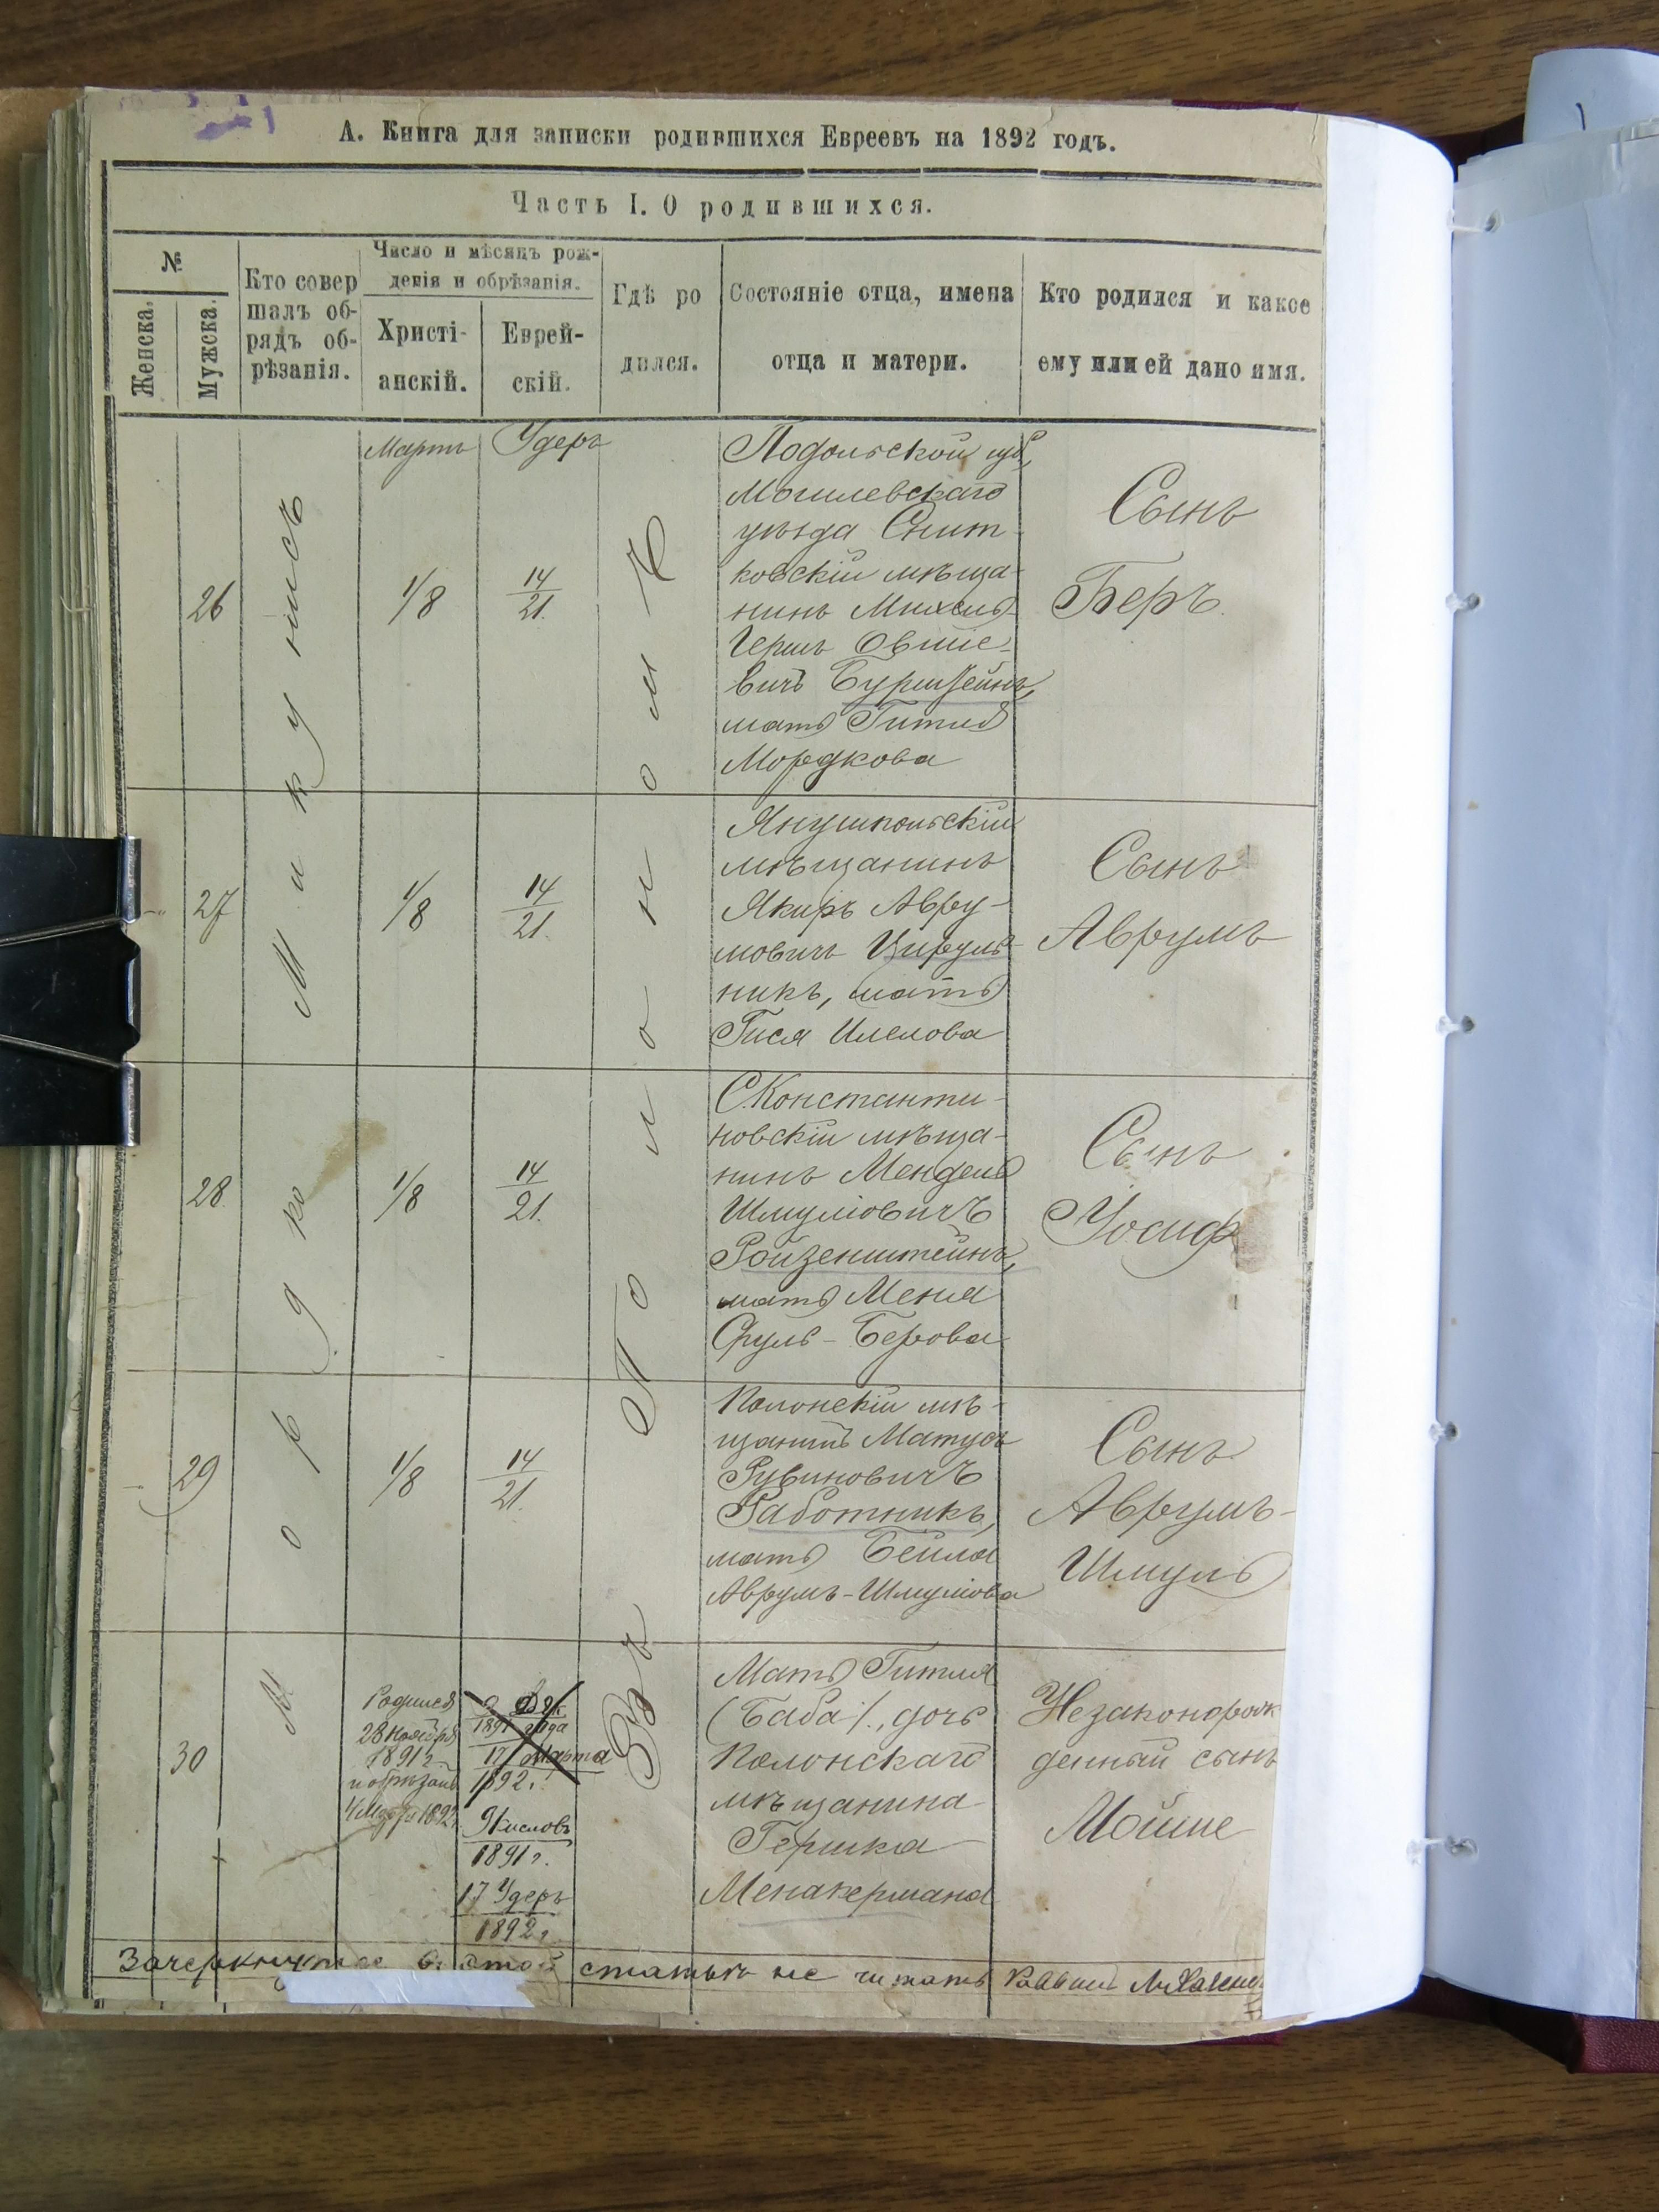 А. Книга для записки родившихся Евреевъ на 1892 годъ.
Часть I. О родившихся.
№
Женска.
Мужска.
Кто совер
шалъ об-
рядъ об-
рѣзанія.
Число и мѣсяцъ рож-
денія и обрѣзанія.
Христі-
анскій.
Еврей-
скій.
Гдѣ ро
дился.
Состояніе отца, имена
отца и матери.
Кто родился и какое
ему или ей дано имя.
Мартъ
Удеръ
Мордко Микунисъ
Въ Полонномъ
26
1/8
14
21.
Подольской губ,
Могилевскаго
уѣзда Снит-
ковскій мѣща-
нинъ Михель
Гершъ Овшіе-
вичъ Бурштейнъ,
мать Гитля
Мордкова
Сынъ
Беръ.
27
1/8
14
21.
Янушпольскій
мѣщанинъ
Якиръ Авру-
мовичъ Цируль-
никъ, мать
Гися Илелова
Сынъ
Аврумъ
28
1/8
14
21.
С.Константи-
новскій мѣща-
нинъ Мендель
Шмуліовичъ
Ройзенштейнъ,
мать Меня
Сруль-Берова
Сынъ
Іосиф
29
1/8
14
21.
Полонскій мѣ-
щанинъ Матусъ
Рувиновичъ
Работникъ,
мать Бейла
Аврумъ-Шмуліова
Сынъ
Аврумъ-
Шмуль
30
Родился
28 Ноября
1891 г.
и обрѣзанъ
4 Марта 1892
1891 года
17 Марта
1892 г.
9 Кислевъ
1891 г.
17 Удеръ
1892 г.
Мать Гитля
(Баба/., дочь
Полонскаго
мѣщанина
Гершка
Менакермана
Незаконорож
денный сынъ
Мойше
Зачеркнутое въ этой статьѣ не читать Раввинъ